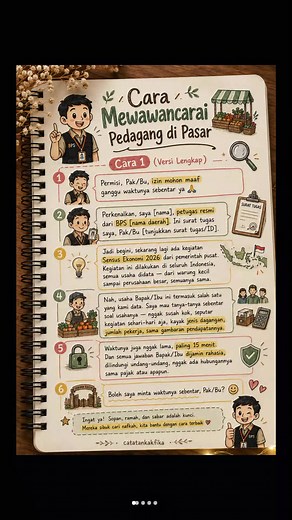 Cara
Mewawancarai
Pedagang di Pasar
BPS
Cara 1 (Versi Lengkap)
1
Permisi, Pak/Bu, izin mohon maaf
ganggu waktunya sebentar ya 🙏
2
Perkenalkan, saya [nama], petugas resmi
dari BPS [nama daerah]. Ini surat tugas
saya, Pak/Bu [tunjukkan surat tugas/ID].
SURAT TUGAS
3
Jadi begini, sekarang lagi ada kegiatan
Sensus Ekonomi 2026 dari pemerintah pusat.
Kegiatan ini dilakukan di seluruh Indonesia,
semua usaha didata — dari warung kecil
sampai perusahaan besar, semuanya sama.
4
Nah, usaha Bapak/Ibu ini termasuk salah satu
yang kami data. Saya mau tanya-tanya sebentar
soal usahanya — nggak susah kok, seputar
kegiatan sehari-hari aja, kayak jenis dagangan,
jumlah pekerja, sama gambaran pendapatannya.
5
Waktunya juga nggak lama, paling 15 menit.
Dan semua jawaban Bapak/Ibu dijamin rahasia,
dilindungi undang-undang, nggak ada hubungannya
sama pajak atau apapun.
6
Boleh saya minta waktunya sebentar, Pak/Bu? 😊
Ingat ya! Sopan, ramah, dan sabar adalah kunci.
Mereka sibuk cari nafkah, kita bantu dengan cara terbaik
catatankakfika